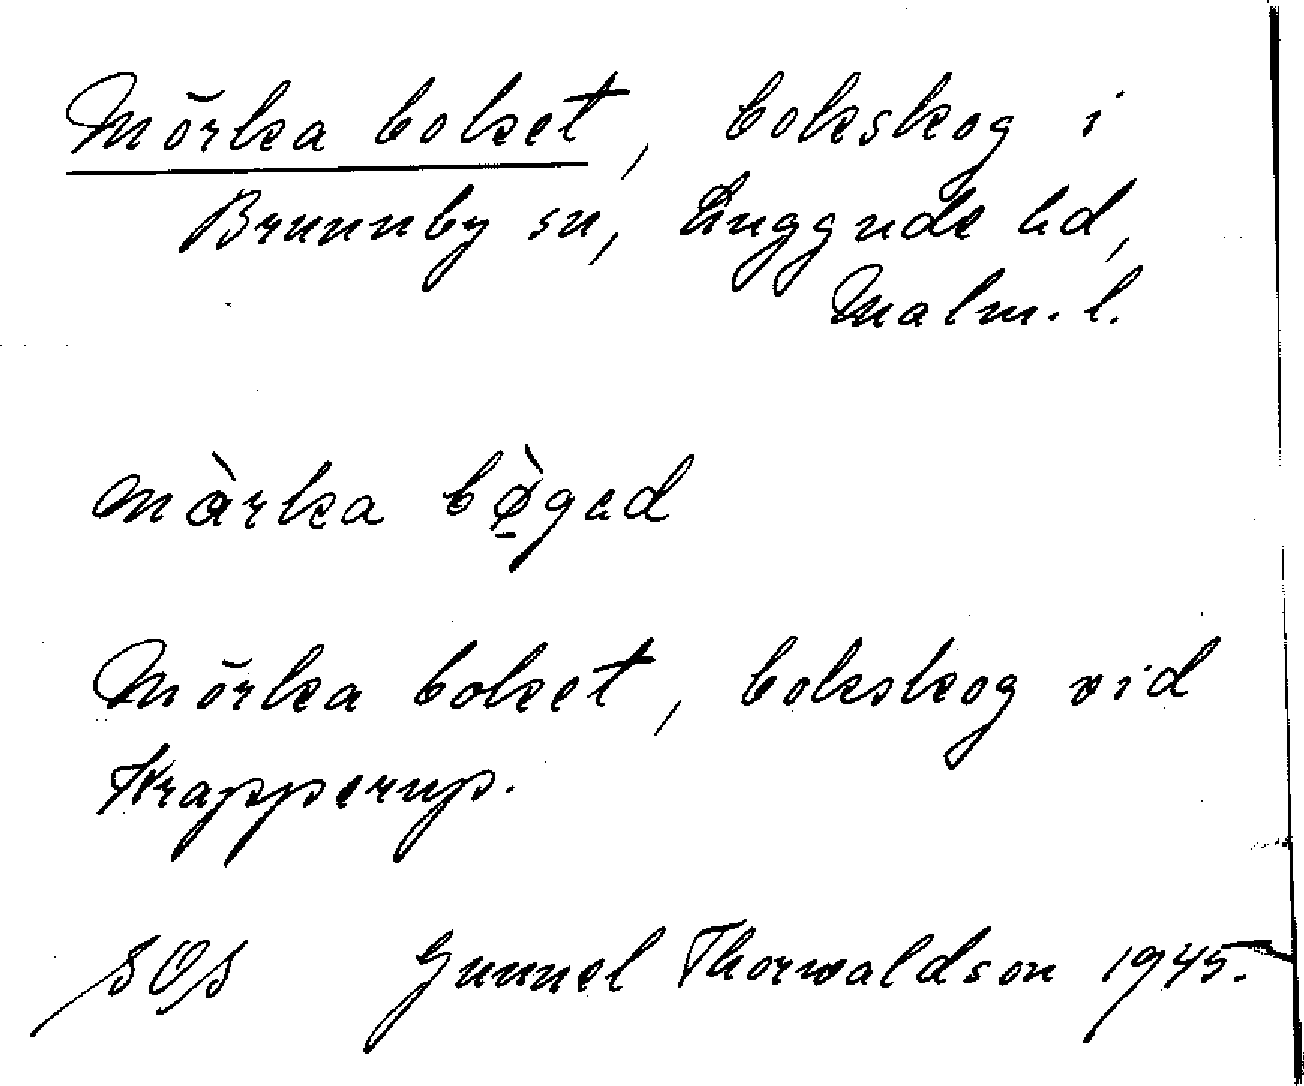 Mörka boket, bokskog i
Brunnby sn, Luggude hd,
Malm. l.
màrka bø̠̀gad
Mörka boket, bokskog vid
Krapperup.
SOS Gunnel Thorwaldson 1945.